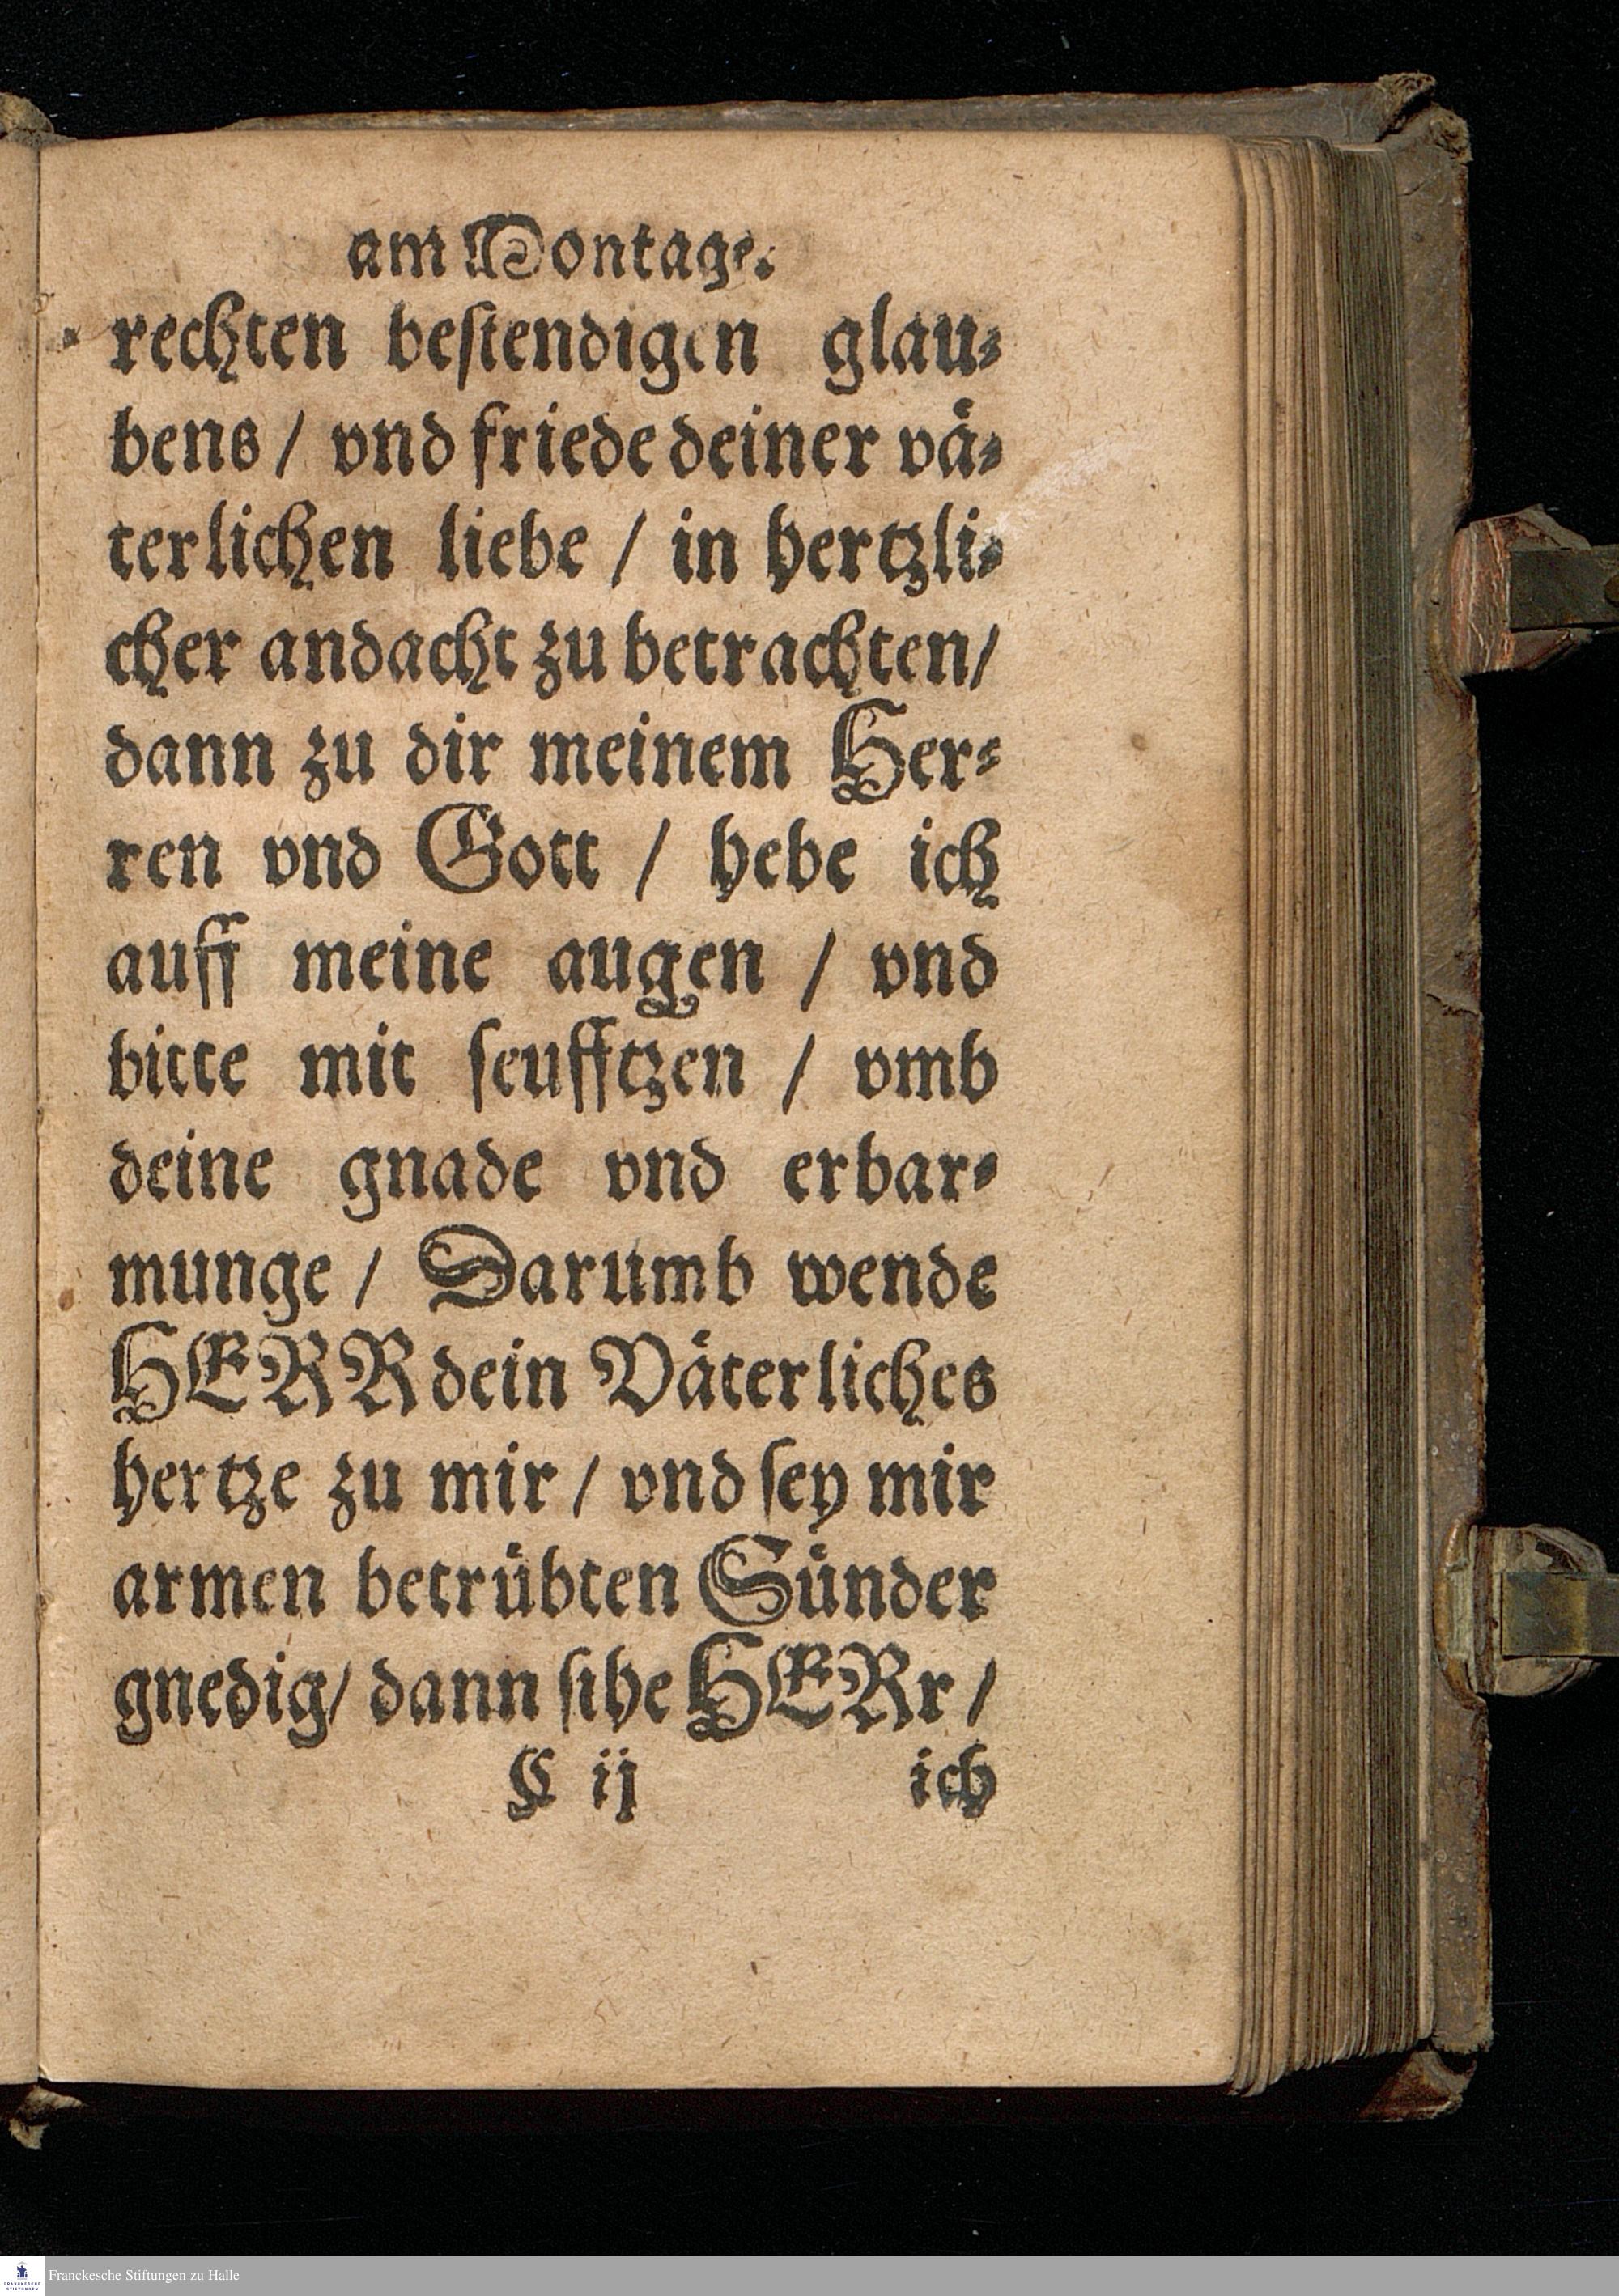 am Montage.
rechten bestendigen glau⸗
bens / vnd friede deiner vä⸗
terlichen liebe / in hertzli⸗
cher andacht zu betrachten/
dann zu dir meinem Her⸗
ren vnd Gott / hebe ich
auff meine augen / vnd
bitte mit seufftzen / vmb
deine gnade vnd erbar⸗
munge / Darumb wende
HERR dein Väterliches
hertze zu mir / vnd sey mir
armen betrübten Sünder
gnedig/ dann sihe HERr /
C ij ich
FRANCKESCHE STIFTUNGEN
Franckesche Stiftungen zu Halle